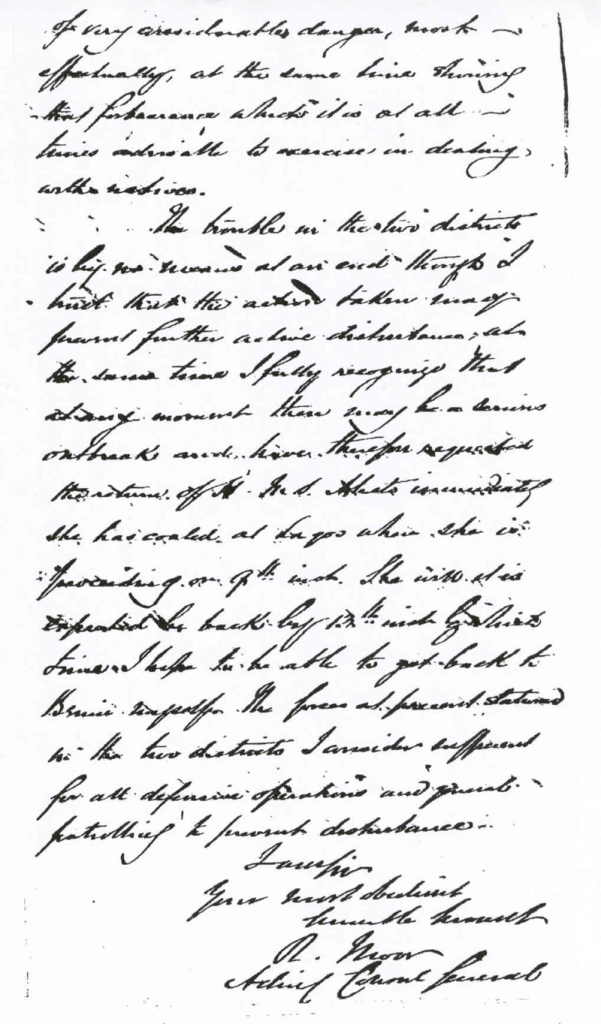 of very considerable danger, most
effectually, at the same time showing
that forbearance which it is at all
times advisable to exercise in dealing
with natives.
The trouble in the two districts
is by no means at an end though I
trust that the action taken may
prevent further active disturbance, at
the same time I fully recognize that
at any moment there may be a serious
outbreak and have therefore requested
the return of H.M.S. Alecto immediately
she has coaled at Lagos where she is
proceeding on 9th inst. She will it is
expected be back by 13th inst by which
time I hope to be able to get back to
Benin myself. The forces at present stationed
in the two districts I consider sufficient
for all defensive operations and general
patrolling to prevent disturbance.
I am Sir
Your most obedient
humble servant
R. Moor
Acting Consul General